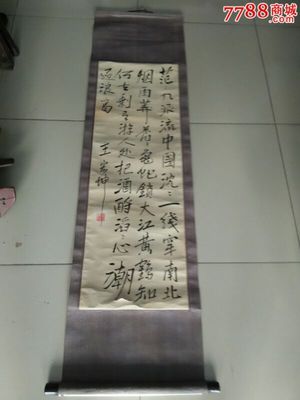 7788商城
茫九派流中国沉々一线穿南北
烟雨莽苍龟蛇锁大江黄鹤知
何去剩有游人处把酒酹滔心潮
逐浪高
王